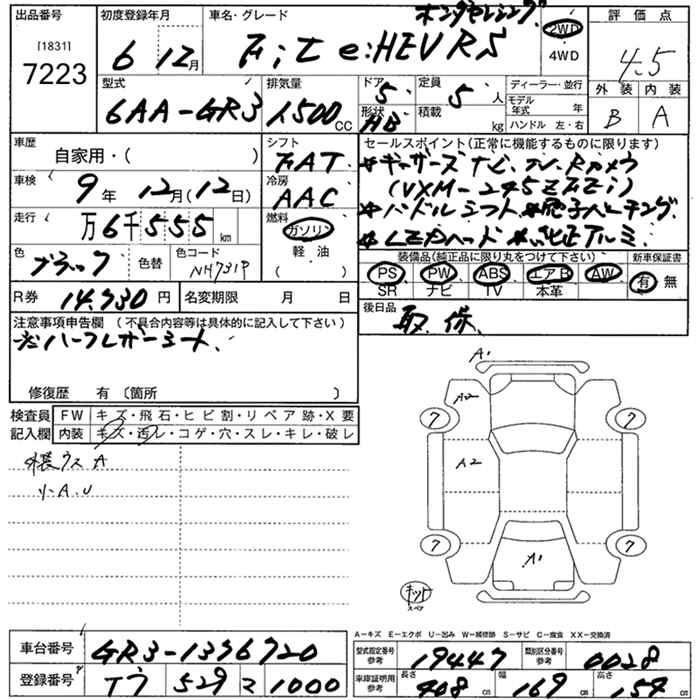 出品番号 初度登録年月 車名・グレード ホンダセンシング 評価点
[1831] 7223 6 12月 Fit e:HEV RS 2WD 4WD 4.5
型式 排気量 ドア 定員 ディーラー・並行 外装 内装
6AA-GR3 1500 CC 5 5 人 モデル年式 年 B A
形状 HB 積載 kg ハンドル 左・右
車歴 自家用・( ) シフト FAT セールスポイント(正常に機能するものに限ります)
車検 9年 12月(12日) 冷房 AAC ギャザーズナビ TV Rカメラ
(VXM-245ZFEi)
走行 万6千555km 燃料 ガソリン 軽油 ( ) ハンドルシフト 電子パーキング
LEDヘッド 純正アルミ
色 ブラック 色替 色コード NH731P 装備品(純正品に限り丸をつけて下さい) 新車保証書
PS PW ABS エアB AW 有・無
SR ナビ TV 本革
R券 14,730円 名変期限 月 日 後日品 取、保、
注意事項申告欄 (不具合内容等は具体的に記入して下さい)
ハーフレザーシート、
修復歴 有 〔箇所 〕
検査員記入欄 FW キズ・飛石・ヒビ割・リペア跡・X要
内装 キズ・汚レ・コゲ・穴・スレ・キレ・破レ
外装ウスA
小A.U
A1
A2
7 7
A2
7 7
A1
キット
スペア
A-キズ E-エクボ U-凹み W-補修跡 S-サビ C-腐食 XX-交換済
車台番号 GR3-1376720 型式指定番号 参考 19447 類別区分番号 参考 0028
登録番号 T7 529 マ 1000 車庫証明用 参考 長さ 408 cm 幅 169 cm 高さ 154 cm